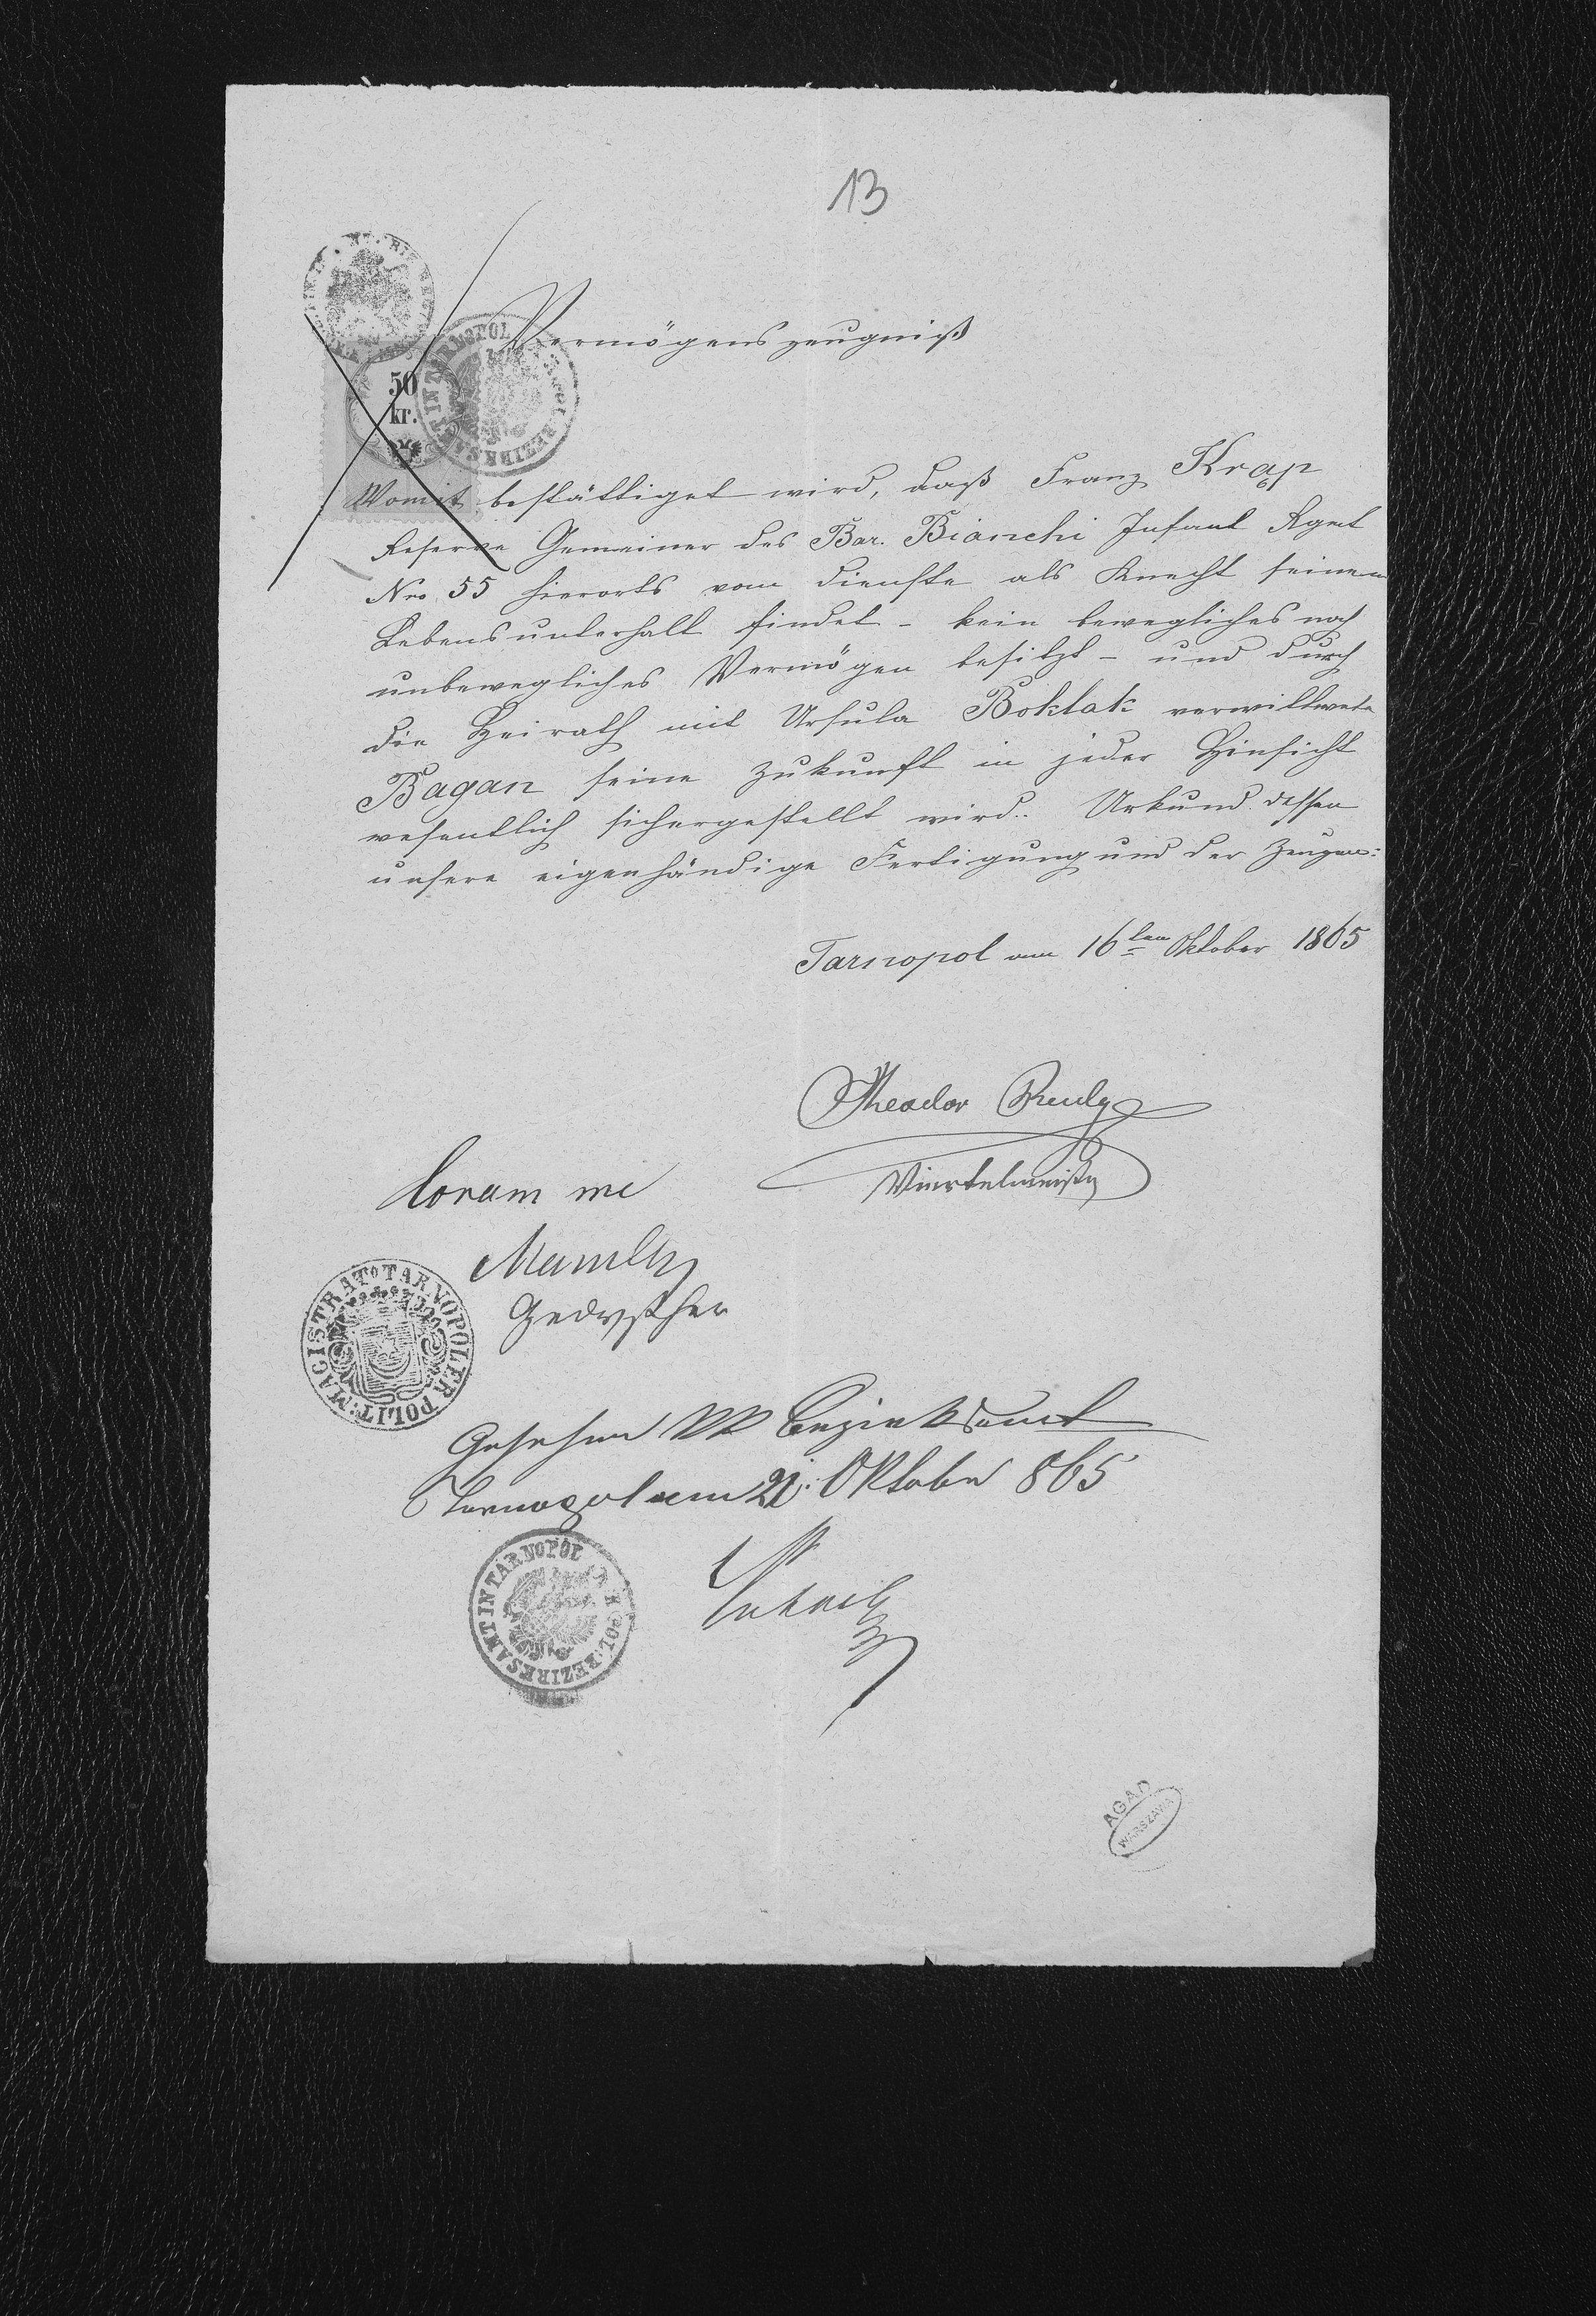 13
Vermögenszeugniß
50
kr.
Womit bestättiget wird, daß Franz Krap
Reserve Gemeiner des Bar. Bianchi Infant Rgmt
Nro 55 hierorts vom Dienste als Knecht seinen
Lebensunterhalt findet - kein bewegliches noch
unbewegliches Vermögen besitzt - und durch
die Heirath mit Ursula Boktak verwittwete
Bagan seine Zukunft in jeder Hinsicht
wesentlich sichergestellt wird. Urkund dessen
unsere eigenhändige Fertigung und der Zeugen:
Tarnopol am 16ten Oktober 1865
Theodor
Viertelmeister
Coram me
MAGISTRAT TARNOPOLER POLIT:
Gesehen KK Bezirksamt
Tarnopol am 21. Oktober 865
K. K. POL. BEZIRKSAMT IN TARNOPOL
AGAD
WARSZAWA